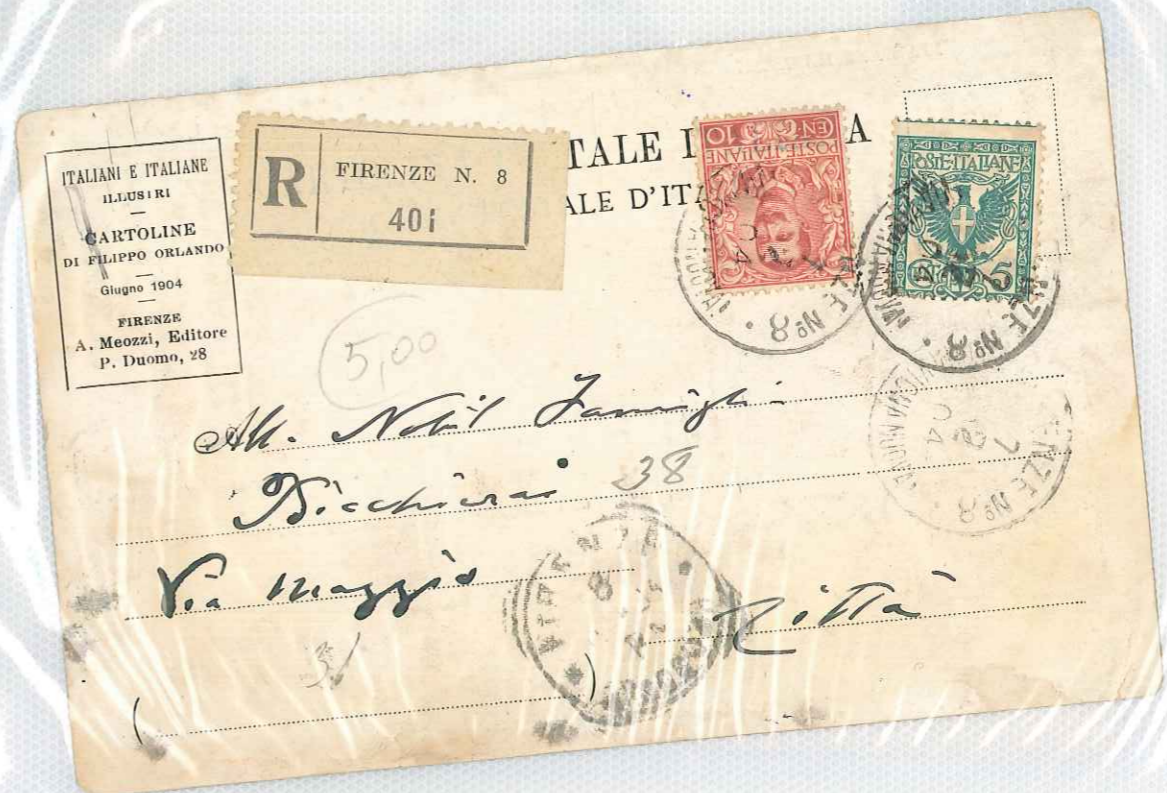 ITALIANI E ITALIANE
ILLUSTRI
CARTOLINE
DI FILIPPO ORLANDO
Giugno 1904
FIRENZE
A. Meozzi, Editore
P. Duomo, 28
R
FIRENZE N. 8
401
TALE I A
ALE D'ITA
POSTE·ITALIANE
CEN 10
POSTE·ITALIANE
CEN 5
ENZE Nº 8
ENZE Nº 8
ENZE Nº 8
7
5,00
All. Nobil Famiglia
38
Via Maggio
Città
FIRENZE
8